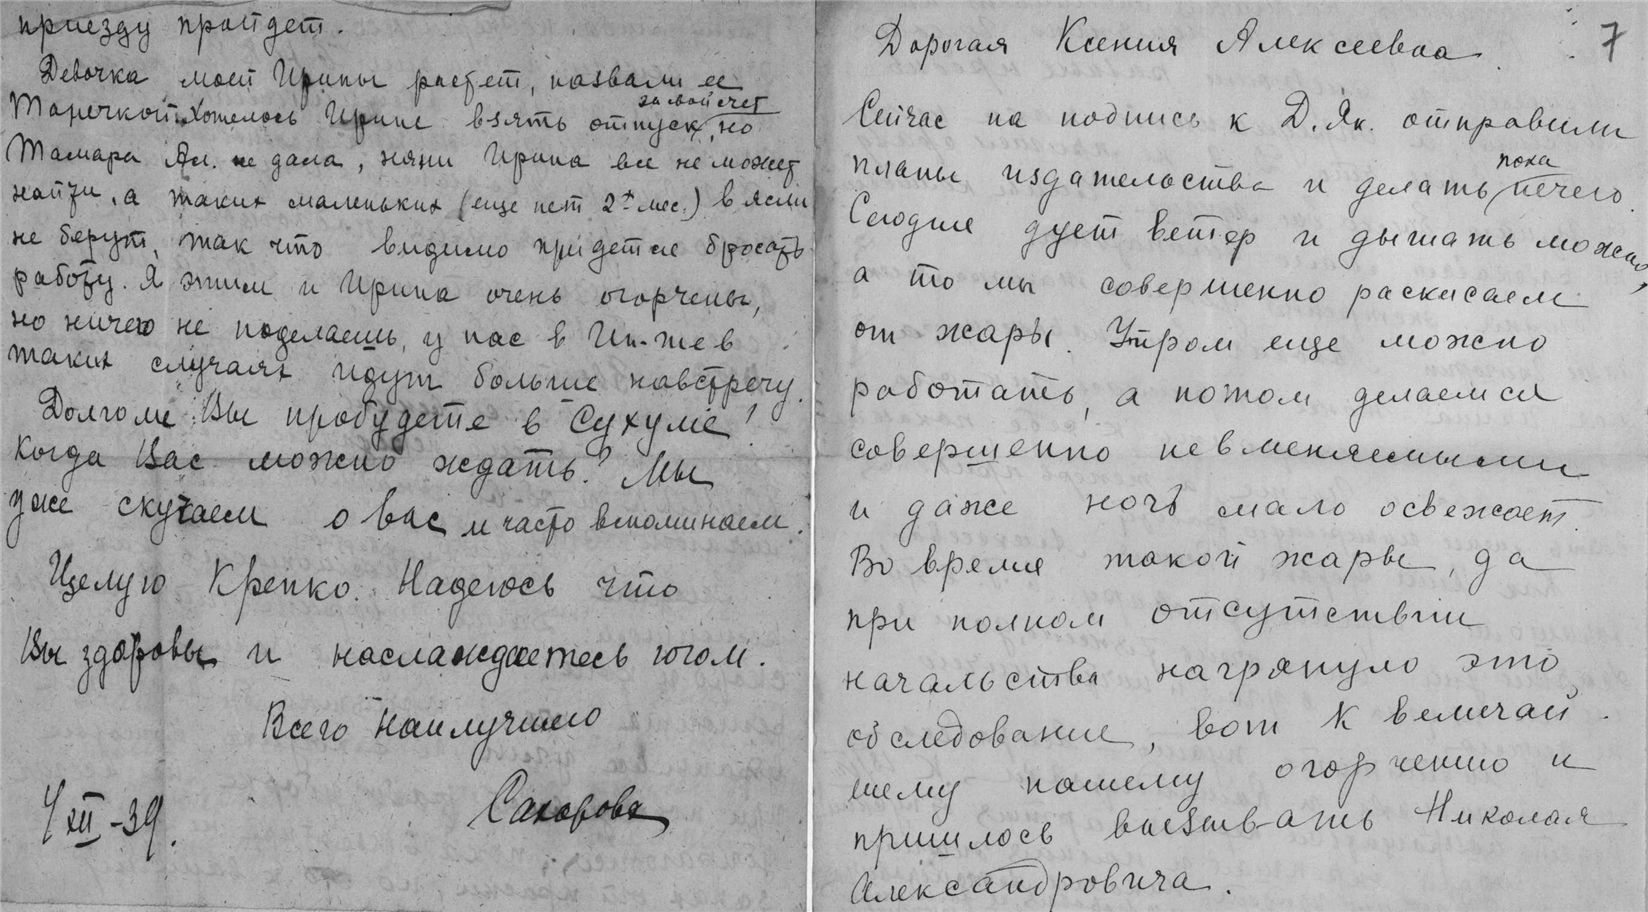 приезду пройдет.
Девочка моей Ирины растет, назвали ее
Танечкой. Хотелось Ирине взять отпуск за свой счет, но
Тамара Ал. не дала, няни Ирина все не может
найти, а таких маленьких (еще нет 2х мес.) в ясли
не берут, так что видимо придется бросать
работу. Я этим и Ирина очень огорчены,
но ничего не поделаешь, у нас в Ин-те в
таких случаях идут больше навстречу.
Долго ли Вы пробудете в Сухуме!
Когда Вас можно ждать? Мы
уже скучаем о вас и часто вспоминаем.
Целую Крепко. Надеюсь что
Вы здоровы и наслаждаетесь югом.
Всего наилучшего
Сахарова
XII-39.
7
Дорогая Ксения Алексеевна
Сейчас на подпись к Д.Як. отправили
планы издательства и делать пока нечего.
Сегодня дует ветер и дышать можно,
а то мы совершенно раскисаем
от жары. Утром еще можно
работать, а потом делаемся
совершенно невменяемыми
и даже ночь мало освежает.
Во время такой жары, да
при полном отсутствии
начальства нагрянуло это
обследование, вот к величай-
шему нашему огорчению и
пришлось вызывать Николая
Александровича.